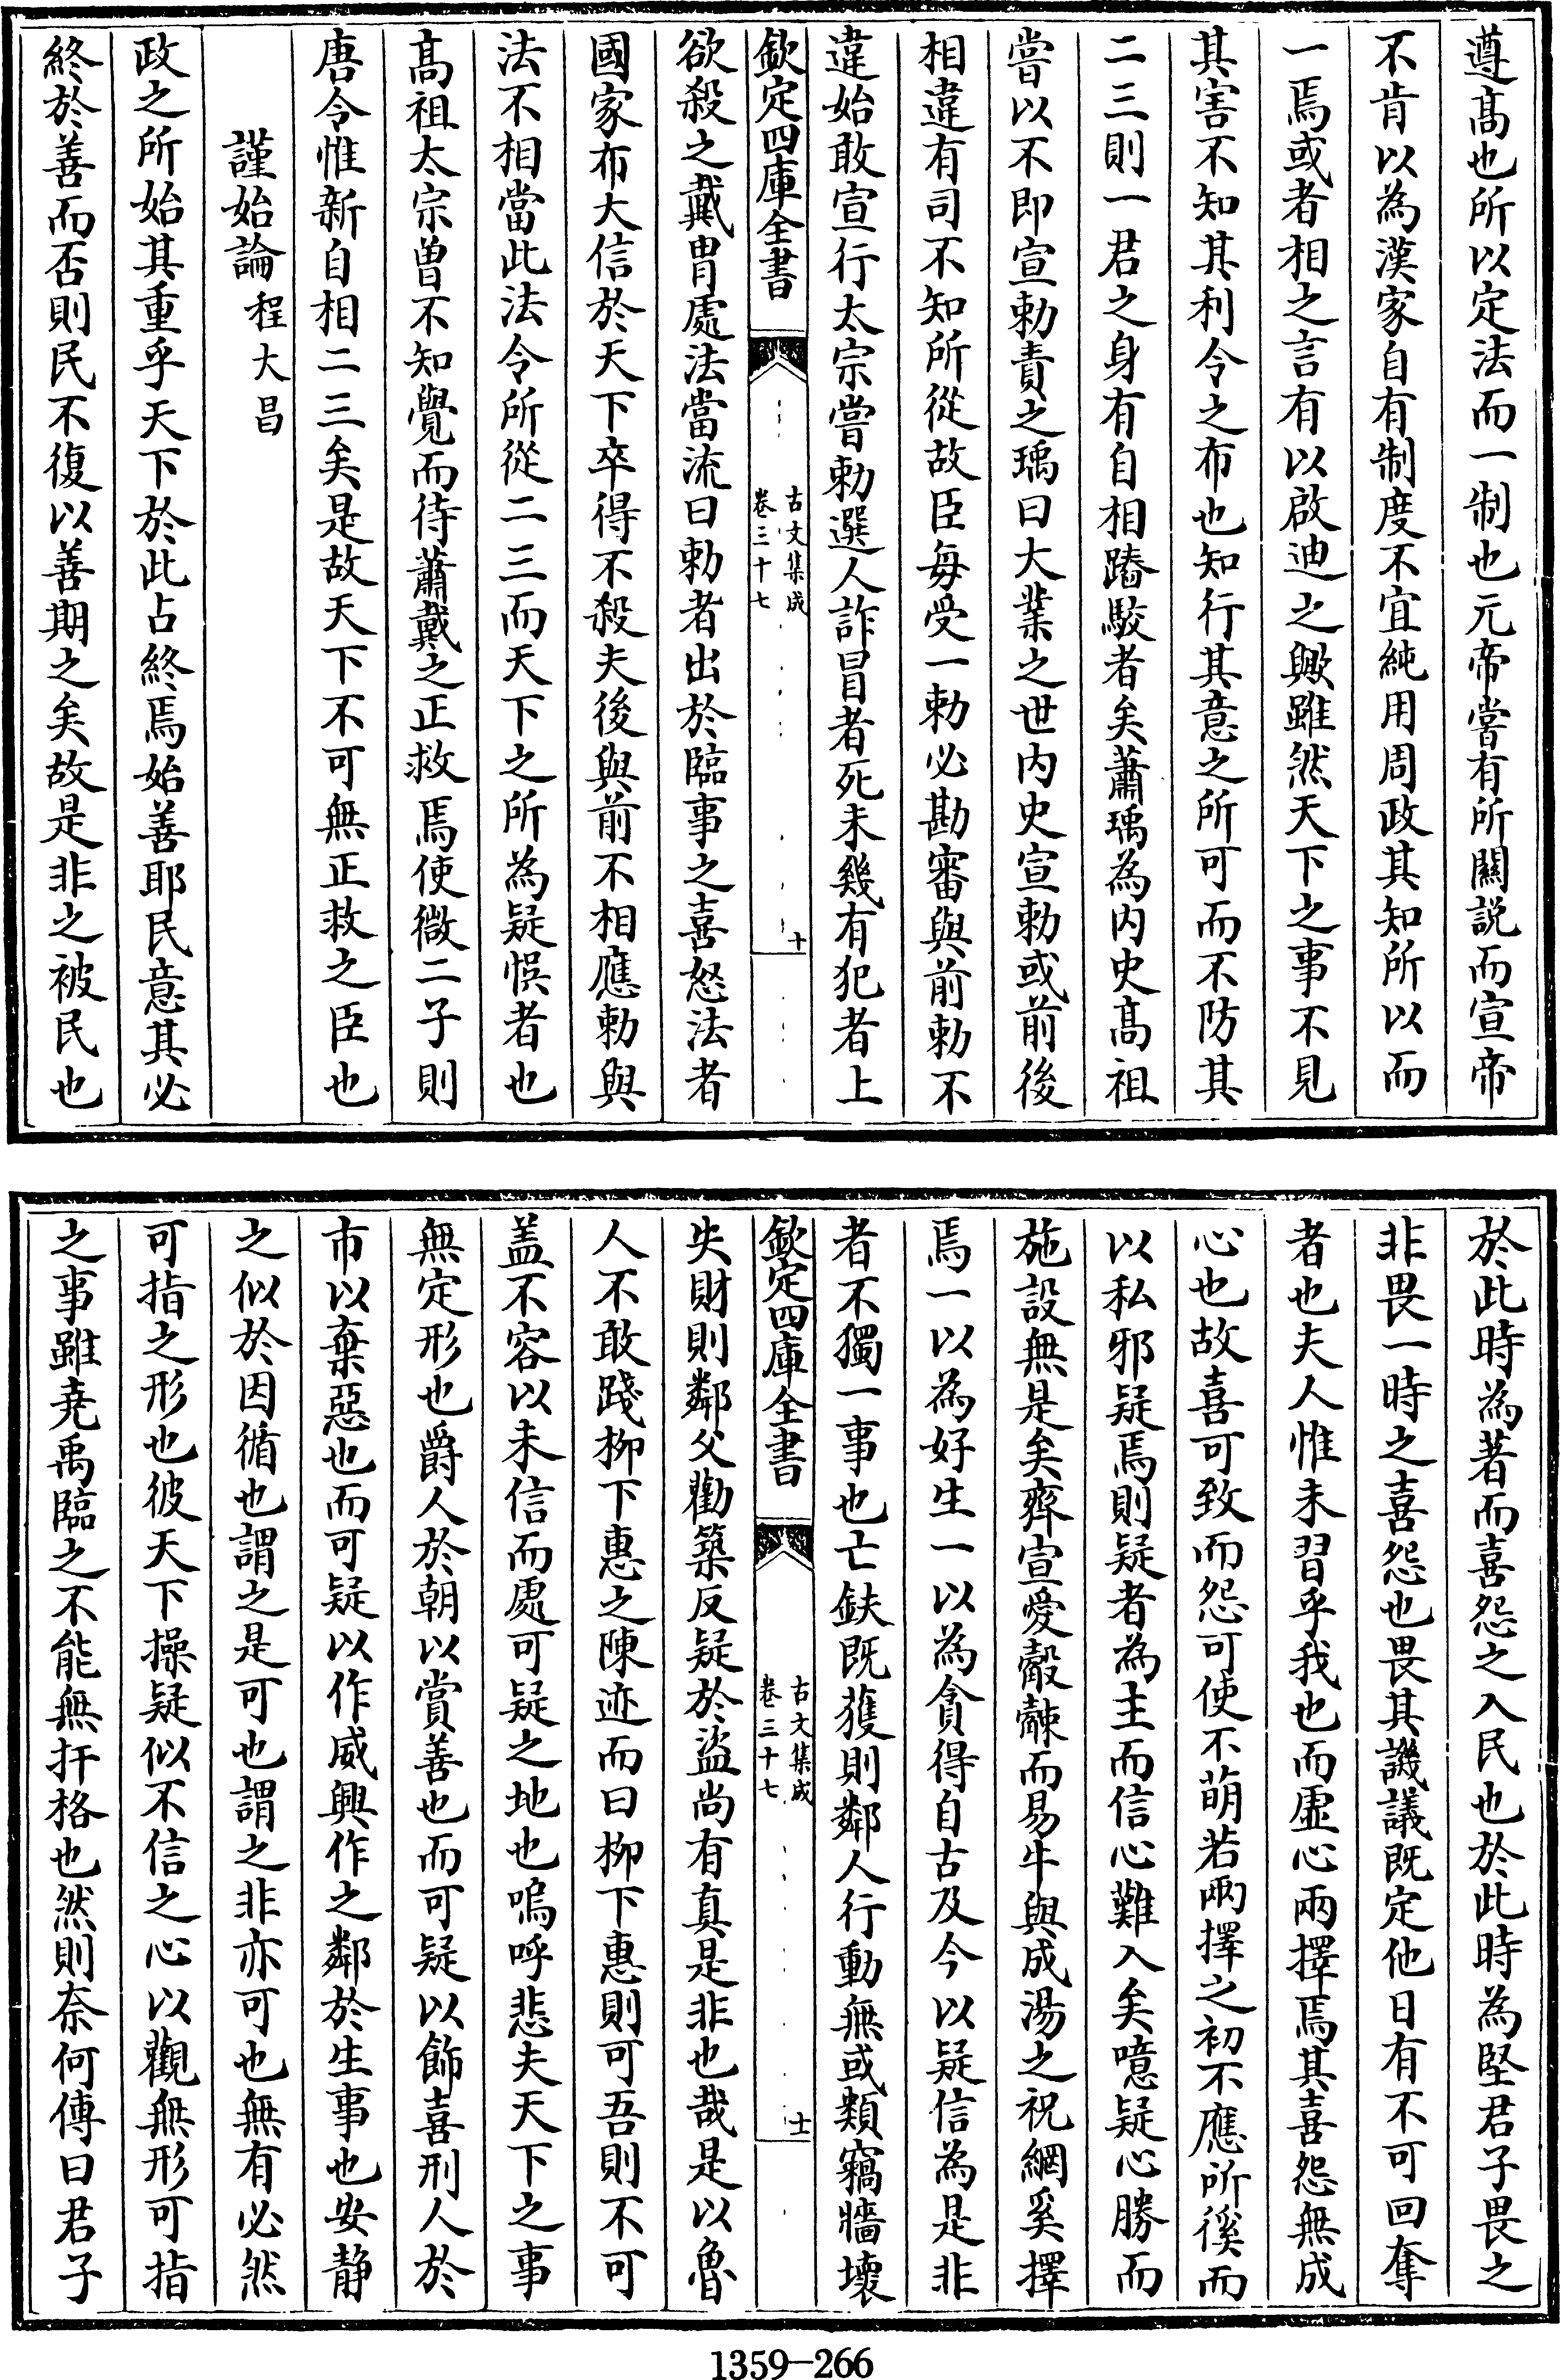 遵髙也所以定法而一制也元帝嘗有所關説而宣帝
不肯以為漢家自有制度不宜純用周政其知所以而
一焉或者相之言有以啟迪之歟雖然天下之事不見
其害不知其利令之布也知行其意之所可而不防其
二三則一君之身有自相踳駮者矣蕭瑀為内史髙祖
嘗以不即宣勅責之瑀曰大業之世内史宣勅或前後
相違有司不知所從故臣毎受一勅必勘審與前勅不
違始敢宣行太宗嘗勅選人詐冒者死未幾有犯者上
欽定四庫全書
古文集成
卷三十七
十
欲殺之戴胄處法當流曰勅者出於臨事之喜怒法者
國家布大信於天下卒得不殺夫後與前不相應勅與
法不相當此法令所從二三而天下之所為疑悞者也
髙祖太宗曾不知覺而待蕭戴之正救焉使微二子則
唐令惟新自相二三矣是故天下不可無正救之臣也
謹始論 程大昌
政之所始其重乎天下於此占終焉始善耶民意其必
終於善而否則民不復以善期之矣故是非之被民也
於此時為著而喜怨之入民也於此時為堅君子畏之
非畏一時之喜怨也畏其譏議既定他日有不可回奪
者也夫人惟未習乎我也而虚心兩擇焉其喜怨無成
心也故喜可致而怨可使不萌若兩擇之初不應所徯而
以私邪疑焉則疑者為主而信心難入矣噫疑心勝而
施設無是矣齊宣愛觳觫而易牛與成湯之祝網奚擇
焉一以為好生一以為貪得自古及今以疑信為是非
者不獨一事也亡鈇既獲則鄰人行動無或類竊牆壞
欽定四庫全書
古文集成
卷三十七
十一
失財則鄰父勸築反疑於盜尚有真是非也哉是以魯
人不敢踐柳下惠之陳迹而曰柳下惠則可吾則不可
盖不容以未信而處可疑之地也嗚呼悲夫天下之事
無定形也爵人於朝以賞善也而可疑以飾喜刑人於
市以棄惡也而可疑以作威興作之鄰於生事也安静
之似於因循也謂之是可也謂之非亦可也無有必然
可指之形也彼天下操疑似不信之心以觀無形可指
之事雖尭禹臨之不能無扞格也然則奈何傳曰君子
1359-266